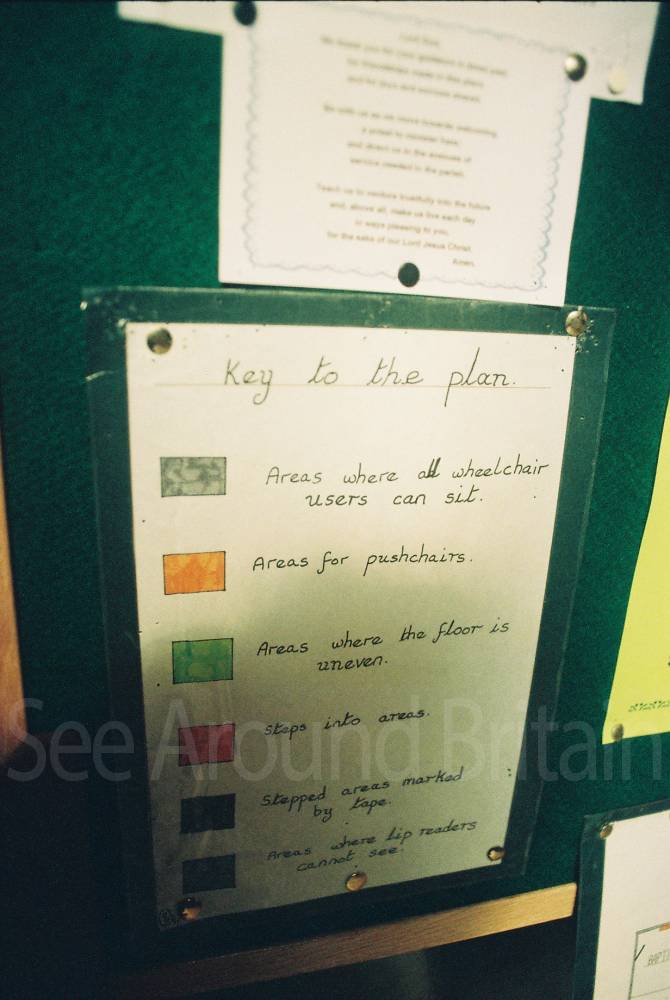 Lord God,
We thank you for your guidance in times past,
for friendships made in this place
and for joys and sorrows shared.
Be with us as we move towards welcoming
a priest to minister here,
and direct us in the exercise of
service needed in the parish.
Teach us to venture trustfully into the future
and, above all, make us live each day
in ways pleasing to you,
for the sake of our Lord Jesus Christ.
Amen.
Key to the plan.
Areas where all wheelchair
users can sit.
Areas for pushchairs.
Areas where the floor is
uneven.
Steps into areas.
See Around Britain
Stepped areas marked
by tape.
Areas where lip readers
cannot see.